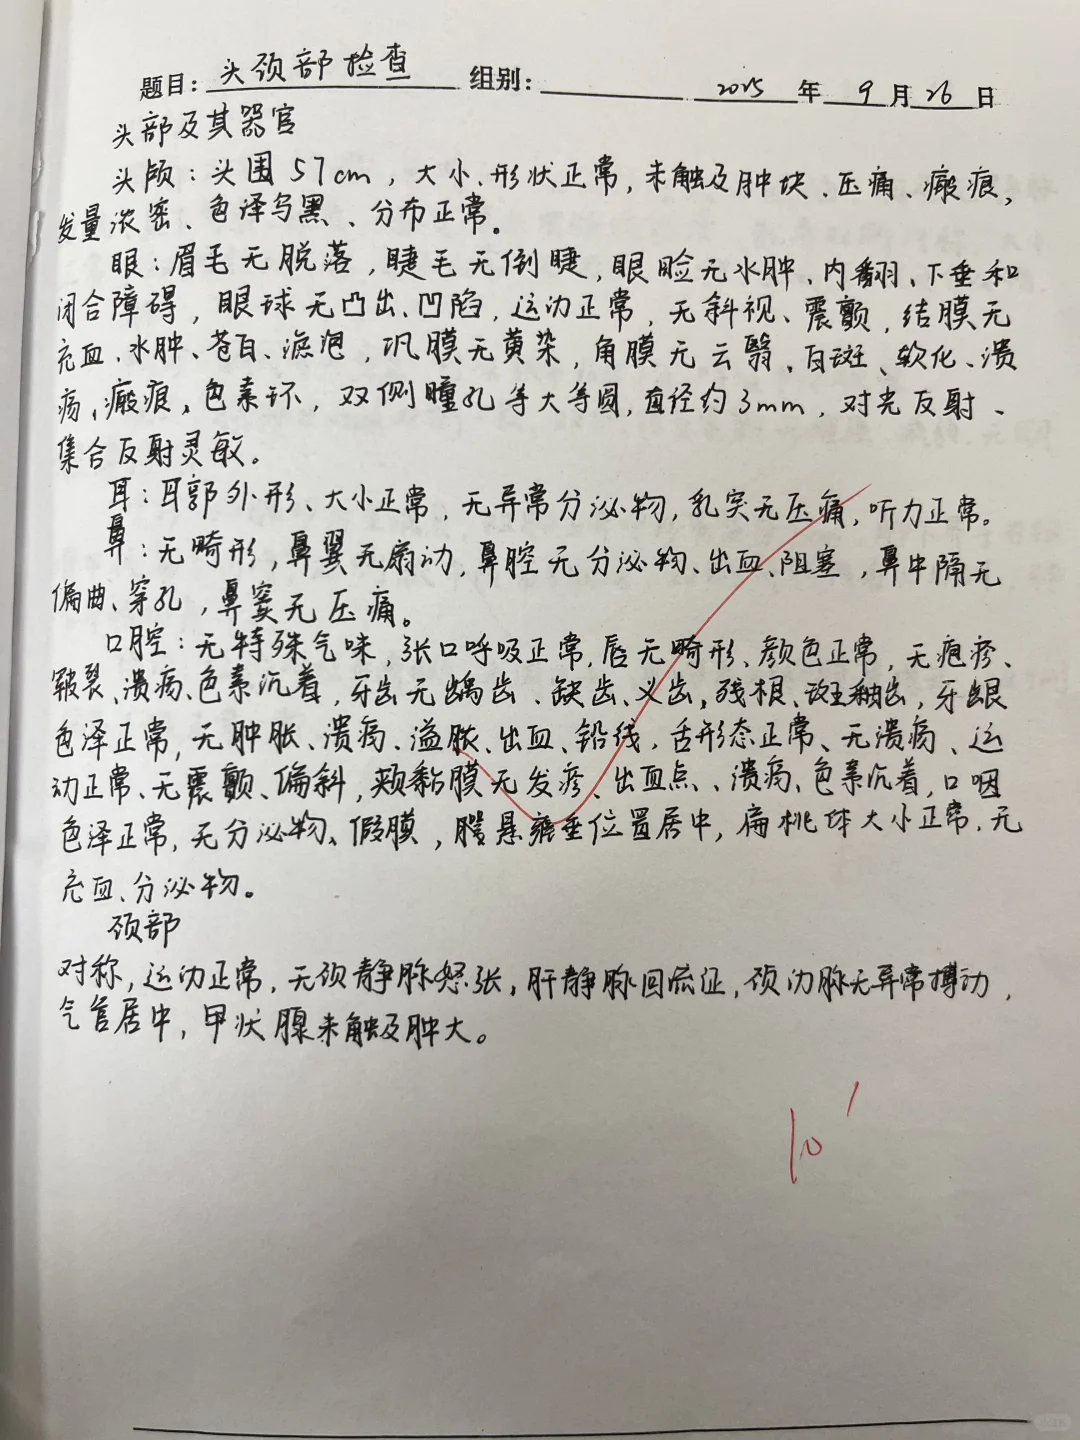 题目: 头颈部检查 组别: 2025 年 9 月 26 日
头部及其器官
头颅：头围57cm，大小、形状正常，未触及肿块、压痛、瘢痕，
发量浓密、色泽乌黑、分布正常。
眼：眉毛无脱落，睫毛无倒睫，眼睑无水肿、内翻、下垂和
闭合障碍，眼球无凸出、凹陷，运动正常，无斜视、震颤，结膜无
充血、水肿、苍白、滤泡，巩膜无黄染，角膜无云翳、白斑、软化、溃
疡、瘢痕、色素环，双侧瞳孔等大等圆，直径约3mm，对光反射、
集合反射灵敏。
耳：耳郭外形、大小正常，无异常分泌物，乳突无压痛，听力正常。
鼻：无畸形，鼻翼无扇动，鼻腔无分泌物、出血、阻塞，鼻中隔无
偏曲、穿孔，鼻窦无压痛。
口腔：无特殊气味，张口呼吸正常，唇无畸形、颜色正常，无疱疹、
皲裂、溃疡、色素沉着，牙齿无龋齿、缺齿、义齿，残根、斑釉齿，牙龈
色泽正常，无肿胀、溃疡、溢脓、出血、铅线，舌形态正常、无溃疡、运
动正常、无震颤、偏斜，颊黏膜无发疹、出血点、溃疡、色素沉着，口咽
色泽正常，无分泌物、假膜，腭悬雍垂位置居中，扁桃体大小正常，无
充血、分泌物。
颈部
对称，运动正常，无颈静脉怒张，肝静脉回流征，颈动脉无异常搏动，
气管居中，甲状腺未触及肿大。
10'